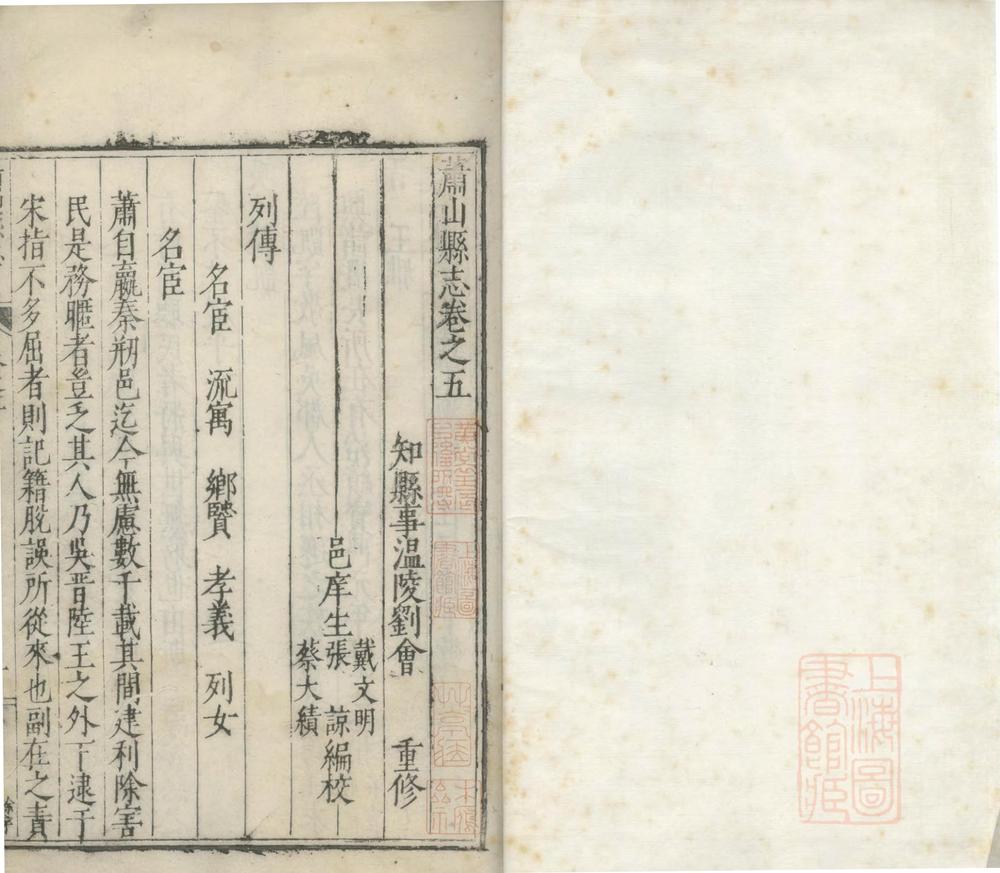 上海圖
書館藏
蕭山縣志卷之五
知縣事溫陵劉會 重修
戴文明
邑庠生張 諒編校
蔡大績
列傳
名宦 流寓 鄉賢 孝義 列女
名宦
蕭自嬴秦剏邑迄今無慮數千載其間建利除害
民是務曬者豈乏其人乃吳晉陸王之外丁逮于
宋指不多屈者則記籍脫誤所從來也副在之責